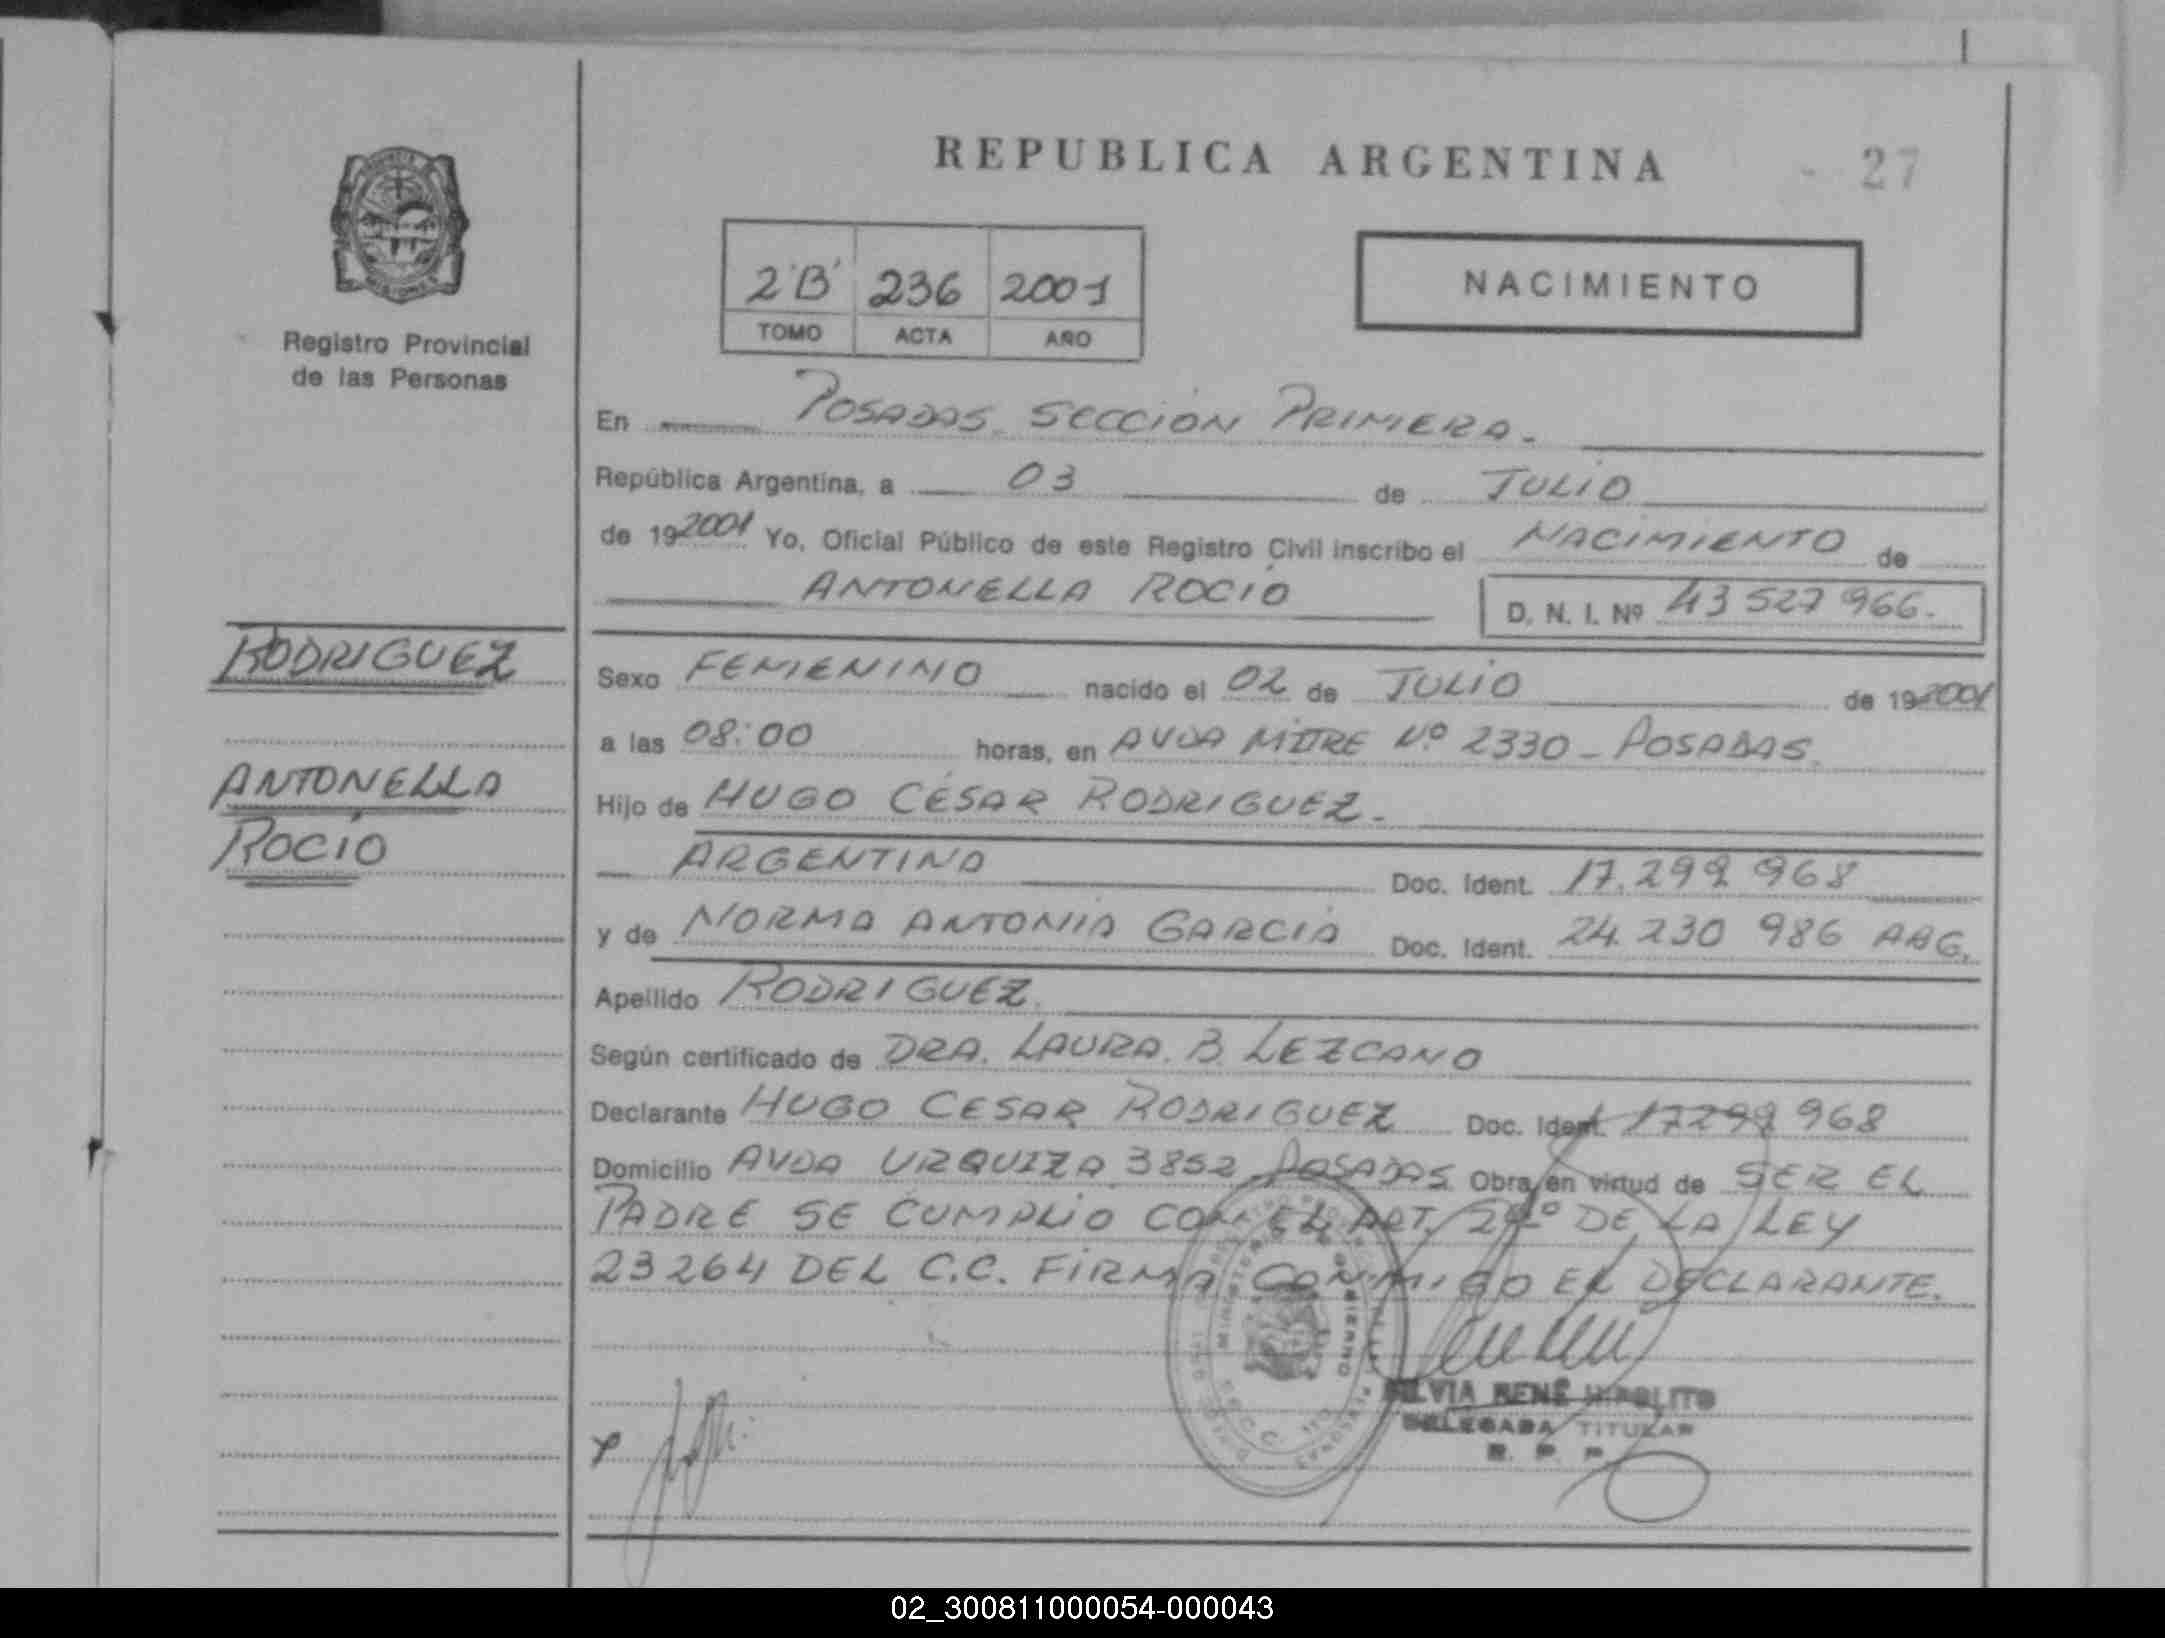 REPUBLICA ARGENTINA
27
Registro Provincial
de las Personas
2"B" 236 2001
TOMO ACTA AÑO
NACIMIENTO
En POSADAS SECCION PRIMERA.
República Argentina, a 03 de JULIO
de 192001 Yo, Oficial Público de este Registro Civil inscribo el NACIMIENTO de
ANTONELLA ROCIO D. N. I. Nº 43 527 966.
RODRIGUEZ
ANTONELLA
ROCIO
Sexo FEMENINO nacido el 02 de JULIO de 192001
a las 08:00 horas, en AVDA MITRE Nº 2330 - POSADAS.
Hijo de HUGO CESAR RODRIGUEZ.
ARGENTINO Doc. Ident. 17.299 968
y de NORMA ANTONIA GARCIA Doc. Ident. 24.230 986 ARG.
Apellido RODRIGUEZ.
Según certificado de DRA. LAURA. B. LEZCANO
Declarante HUGO CESAR RODRIGUEZ Doc. Ident. 17299 968
Domicilio AVDA URQUIZA 3852 POSADAS Obra en virtud de SER EL
PADRE SE CUMPLIO CON EL ART. DE LA LEY
23264 DEL C.C. FIRMA CONMIGO EL DECLARANTE.
SILVIA RENÉ HIPOLITO
DELEGADA TITULAR
R. P. P.
02_300811000054-000043